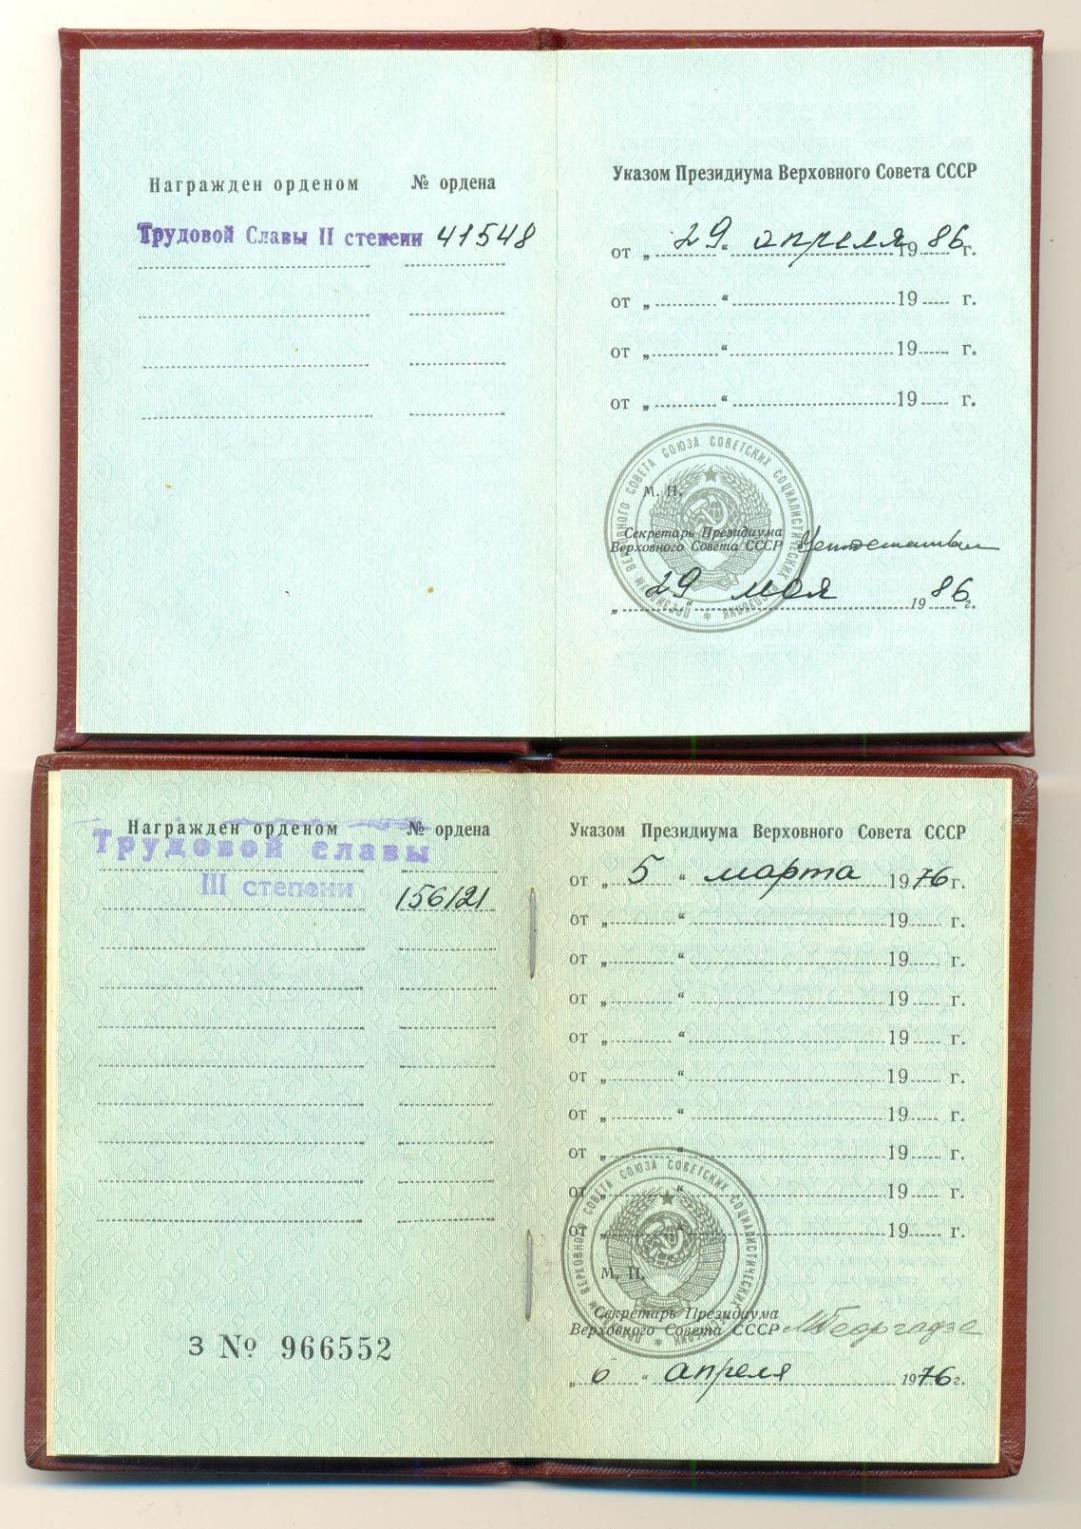 Награжден орденом № ордена
Трудовой Славы II степени 41548
Указом Президиума Верховного Совета СССР
от „ 29 “ апреля 19 86 г.
от „ “ 19 г.
от „ “ 19 г.
от „ “ 19 г.
ПРЕЗИДИУМ ВЕРХОВНОГО СОВЕТА СОЮЗА СОВЕТСКИХ СОЦИАЛИСТИЧЕСКИХ РЕСПУБЛИК
М. П.
Секретарь Президиума
Верховного Совета СССР
„ 29 “ мая 19 86 г.
Награжден орденом № ордена
Трудовой славы
III степени 156121
З № 966552
Указом Президиума Верховного Совета СССР
от „ 5 “ марта 1976 г.
от „ “ 19 г.
от „ “ 19 г.
от „ “ 19 г.
от „ “ 19 г.
от „ “ 19 г.
от „ “ 19 г.
от „ “ 19 г.
от „ “ 19 г.
от „ “ 19 г.
ПРЕЗИДИУМ ВЕРХОВНОГО СОВЕТА СОЮЗА СОВЕТСКИХ СОЦИАЛИСТИЧЕСКИХ РЕСПУБЛИК
М. П.
Секретарь Президиума
Верховного Совета СССР МГеоргадзе
„ 6 “ апреля 1976 г.